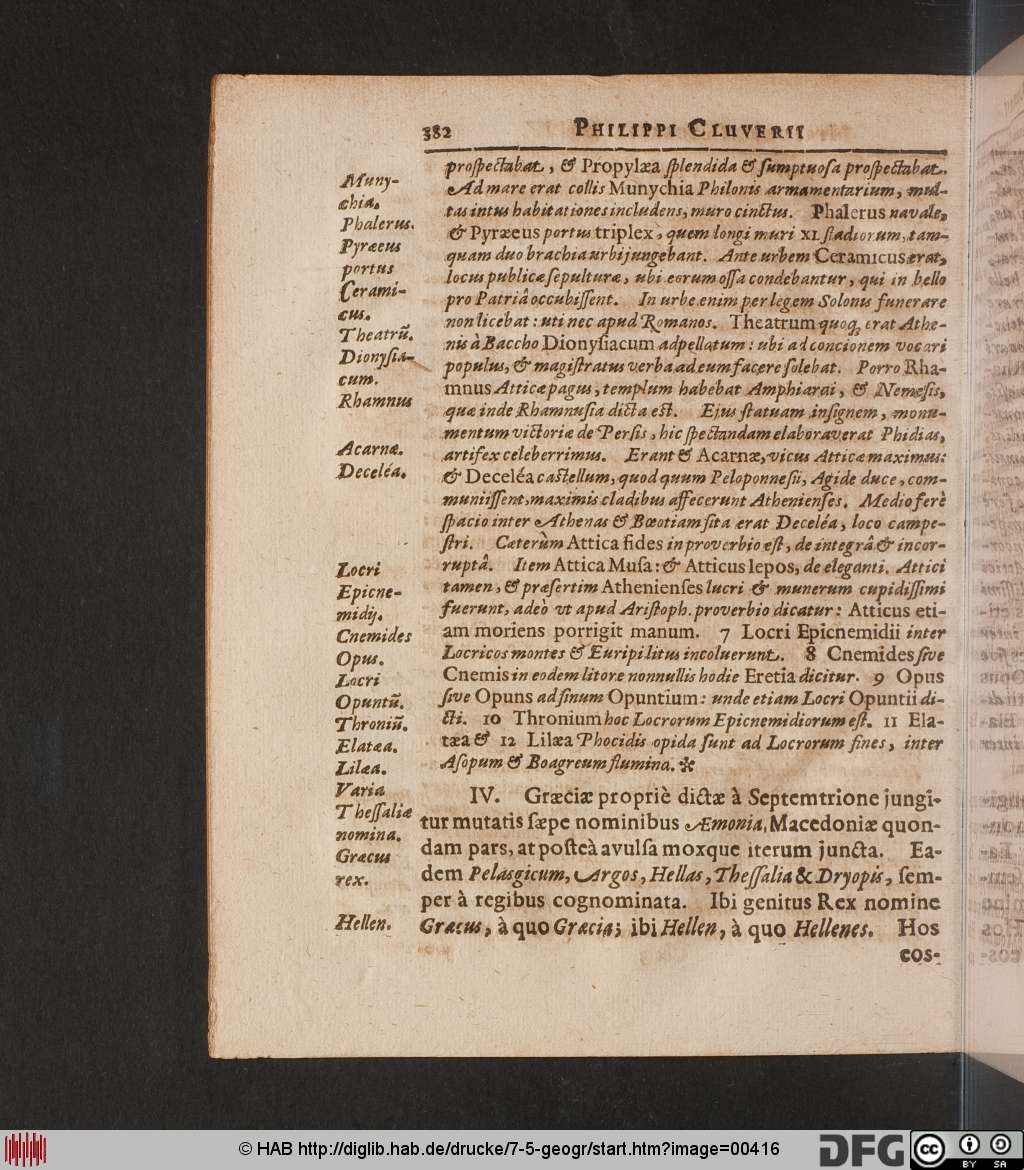 382 PHILIPPI CLUVERII
prospectabat, & Propylæa splendida & sumptuosa prospectabat.
Ad mare erat collis Munychia Philonis armamentarium, mul-
tas intus habitationes includens, muro cinctus. Phalerus navale,
& Pyræeus portus triplex, quem longi muri XL stadiorum, tam-
quam duo brachia urbi jungebant. Ante urbem Ceramicus erat,
locus publicæ sepulturæ, ubi eorum ossa condebantur, qui in bello
pro Patriâ occubissent. In urbe enim per legem Solonis funerare
non licebat: uti nec apud Romanos. Theatrum quoq; erat Athe-
nis à Baccho Dionysiacum adpellatum: ubi ad concionem vocari
populus, & magistratus verba ad eum facere solebat. Porro Rha-
mnus Atticæ pagus, templum habebat Amphiarai, & Nemesis,
quæ inde Rhamnusia dicta est. Ejus statuam insignem, monu-
mentum victoriæ de Persis, hic spectandam elaboraverat Phidias,
artifex celeberrimus. Erant & Acarnæ, vicus Atticæ maximus:
& Deceléa castellum, quod quum Peloponnesii, Agide duce, com-
muniissent, maximis cladibus affecerunt Athenienses. Medio ferè
spacio inter Athenas & Bœotiam sita erat Deceléa, loco campe-
stri. Cæterùm Attica fides in proverbio est, de integrâ & incor-
ruptâ. Item Attica Musa: & Atticus lepos, de eleganti. Attici
tamen, & præsertim Athenienses lucri & munerum cupidissimi
fuerunt, adeò ut apud Aristoph. proverbio dicatur: Atticus eti-
am moriens porrigit manum. 7 Locri Epicnemidii inter
Locricos montes & Euripi litus incoluerunt. 8 Cnemides sive
Cnemis in eodem litore nonnullis hodie Eretia dicitur. 9 Opus
sive Opuns ad sinum Opuntium: unde etiam Locri Opuntii di-
cti. 10 Thronium hoc Locrorum Epicnemidiorum est. 11 Ela-
tæa & 12 Lilæa Phocidis opida sunt ad Locrorum fines, inter
Asopum & Boagreum flumina.*
IV. Græciæ propriè dictæ à Septemtrione jungi-
tur mutatis sæpe nominibus Æmonia, Macedoniæ quon-
dam pars, at posteà avulsa moxque iterum juncta. Ea-
dem Pelasgicum, Argos, Hellas, Thessalia & Dryopis, sem-
per à regibus cognominata. Ibi genitus Rex nomine
Græcus, à quo Græcia; ibi Hellen, à quo Hellenes. Hos
cos-
Muny-
chia.
Phalerus.
Pyræeus
portus
Cerami-
cus.
Theatrũ.
Dionysia-
cum.
Rhamnus
Acarnæ.
Deceléa.
Locri
Epicne-
midij.
Cnemides
Opus.
Locri
Opuntũ.
Throniũ.
Elatæa.
Lilæa.
Varia
Thessaliæ
nomina.
Græcus
rex.
Hellen.
© HAB http://diglib.hab.de/drucke/7-5-geogr/start.htm?image=00416
DFG
cc BY SA